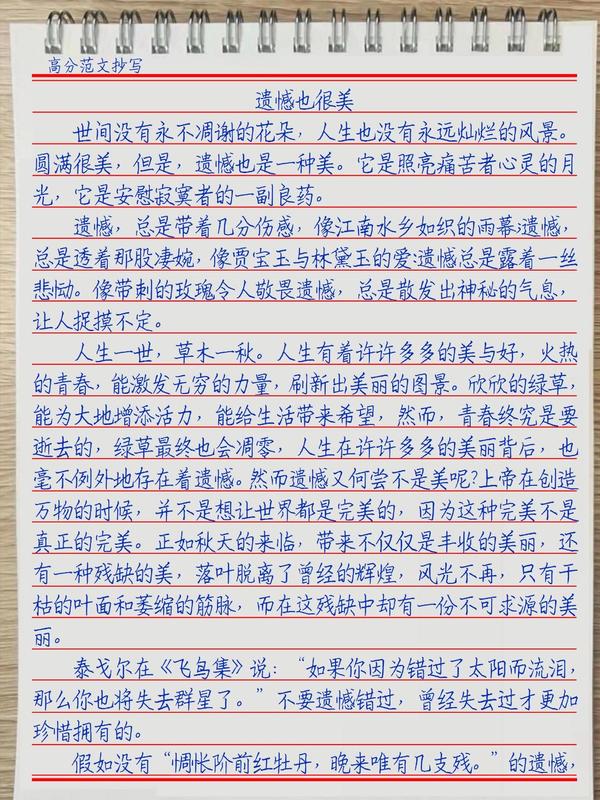 高分范文抄写
遗憾也很美
世间没有永不凋谢的花朵，人生也没有永远灿烂的风景。
圆满很美，但是，遗憾也是一种美。它是照亮痛苦者心灵的月
光，它是安慰寂寞者的一副良药。
遗憾，总是带着几分伤感，像江南水乡如织的雨幕;遗憾，
总是透着那股凄婉，像贾宝玉与林黛玉的爱;遗憾总是露着一丝
悲恸。像带刺的玫瑰令人敬畏遗憾，总是散发出神秘的气息，
让人捉摸不定。
人生一世，草木一秋。人生有着许许多多的美与好，火热
的青春，能激发无穷的力量，刷新出美丽的图景。欣欣的绿草，
能为大地增添活力，能给生活带来希望，然而，青春终究是要
逝去的，绿草最终也会凋零，人生在许许多多的美丽背后，也
毫不例外地存在着遗憾。然而遗憾又何尝不是美呢?上帝在创造
万物的时候，并不是想让世界都是完美的，因为这种完美不是
真正的完美。正如秋天的来临，带来不仅仅是丰收的美丽，还
有一种残缺的美，落叶脱离了曾经的辉煌，风光不再，只有干
枯的叶面和萎缩的筋脉，而在这残缺中却有一份不可求源的美
丽。
泰戈尔在《飞鸟集》说：“如果你因为错过了太阳而流泪，
那么你也将失去群星了。”不要遗憾错过，曾经失去过才更加
珍惜拥有的。
假如没有“惆怅阶前红牡丹，晚来唯有几支残。”的遗憾，